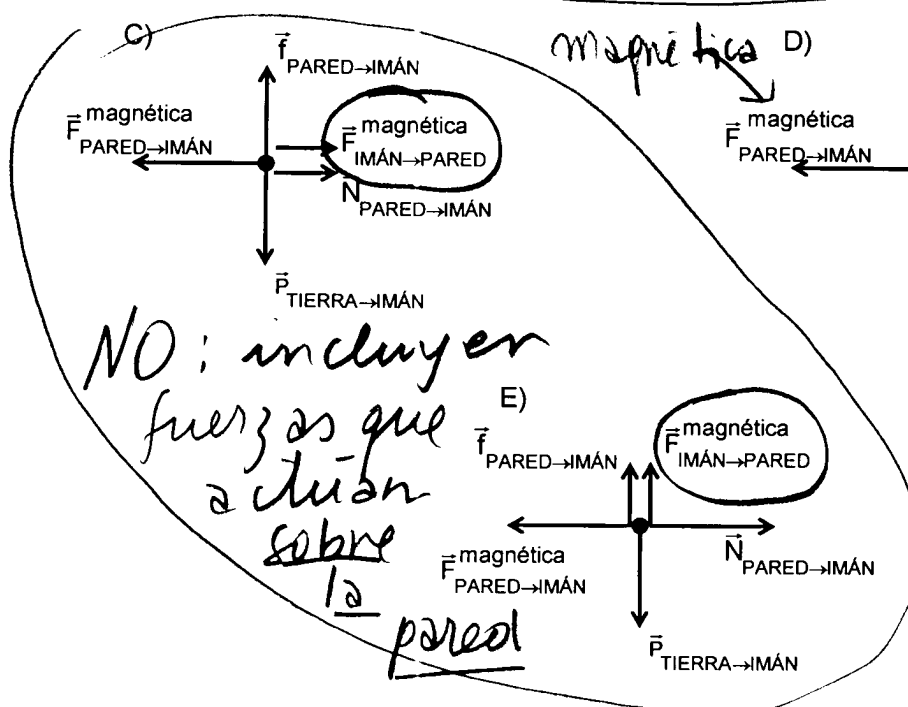 C)
f⃗ PARED→IMÁN
F⃗ magnética PARED→IMÁN
F⃗ magnética IMÁN→PARED
N⃗ PARED→IMÁN
P⃗ TIERRA→IMÁN
magnética
D)
F⃗ magnética PARED→IMÁN
NO: incluyen
fuerzas que
actúan
sobre
la
pared
E)
f⃗ PARED→IMÁN
F⃗ magnética IMÁN→PARED
F⃗ magnética PARED→IMÁN
N⃗ PARED→IMÁN
P⃗ TIERRA→IMÁN